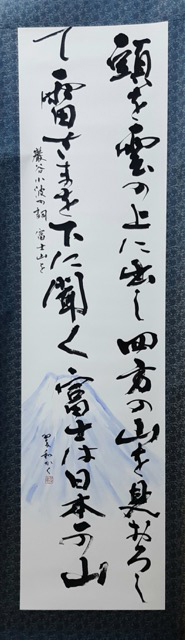 頭を雲の上に出し四方の山を見おろし
て雷さまを下に聞く富士は日本一の山
巌谷小波の詞 富士山を